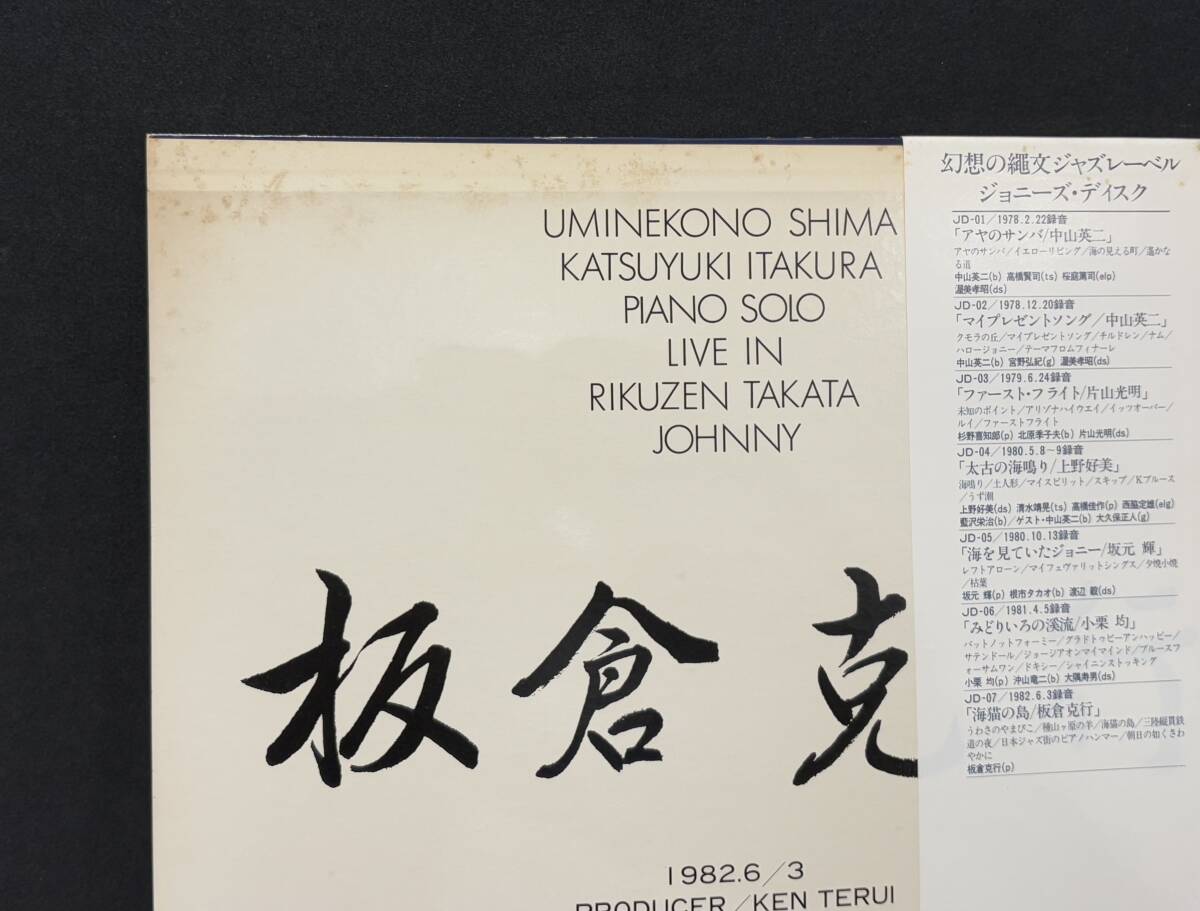 UMINEKONO SHIMA
KATSUYUKI ITAKURA
PIANO SOLO
LIVE IN
RIKUZEN TAKATA
JOHNNY
板倉克
1982.6/3
PRODUCER/KEN TERUI
幻想の縄文ジャズレーベル
ジョニーズ・ディスク
JD-01/1978.2.22録音
「アヤのサンバ/中山英二」
アヤのサンバ/イエローリビング/海の見える町/遥かな
る道
中山英二(b) 高橋賢司(ts) 桜庭篤司(elp)
渥美孝昭(ds)
JD-02/1978.12.20録音
「マイプレゼントソング/中山英二」
クモラの丘/マイプレゼントソング/チルドレン/ナム/
ハロージョニー/テーマフロムフィナーレ
中山英二(b) 宮野弘紀(g) 渥美孝昭(ds)
JD-03/1979.6.24録音
「ファースト・フライト/片山光明」
未知のポイント/アリゾナハイウエイ/イッツオーバー/
ルイ/ファーストフライト
杉野喜知郎(p) 北原季子夫(b) 片山光明(ds)
JD-04/1980.5.8~9録音
「太古の海鳴り/上野好美」
海鳴り/土人形/マイスピリット/スキップ/Kブルース
/うず潮
上野好美(ds) 清水靖晃(ts) 高橋佳作(p) 西脇定雄(elg)
藍沢栄治(b)/ゲスト・中山英二(b) 大久保正人(g)
JD-05/1980.10.13録音
「海を見ていたジョニー/坂元 輝」
レフトアローン/マイフェヴァリットシングス/夕焼小焼
/枯葉
坂元 輝(p) 根市タカオ(b) 渡辺 毅(ds)
JD-06/1981.4.5録音
「みどりいろの溪流/小栗 均」
バットノットフォーミー/グラドトゥビーアンハッピー/
サテンドール/ジョージアオンマイマインド/ブルースフ
ォーサムワン/ドキシー/シャイニンストッキング
小栗 均(p) 沖山竜二(b) 大隅寿男(ds)
JD-07/1982.6.3録音
「海猫の島/板倉克行」
うわさのやまびこ/種山ヶ原の羊/海猫の島/三陸縦貫鉄
道の夜/日本ジャズ街のピアノハンマー/朝日の如くさわ
やかに
板倉克行(p)